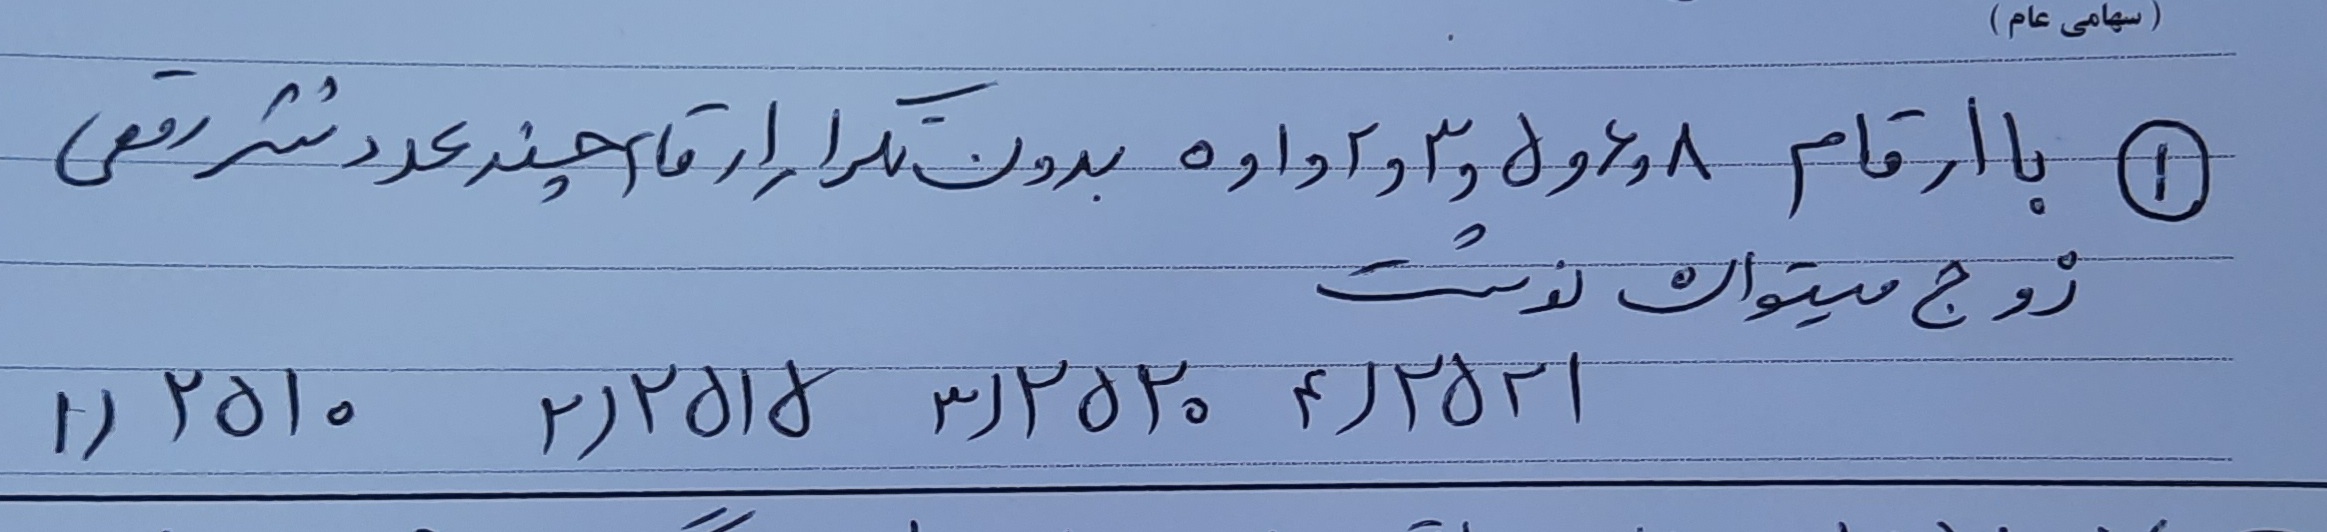 (سهامی عام)
۱ با ارقام ۸و۶و۵و۳و۲و۱و۰ بدون تکرار ارقام چند عدد شش رقمی
زوج میتوان نوشت
۱) ۲۵۱۰ ۲) ۲۵۱۵ ۳) ۲۵۲۰ ۴) ۲۵۲۱